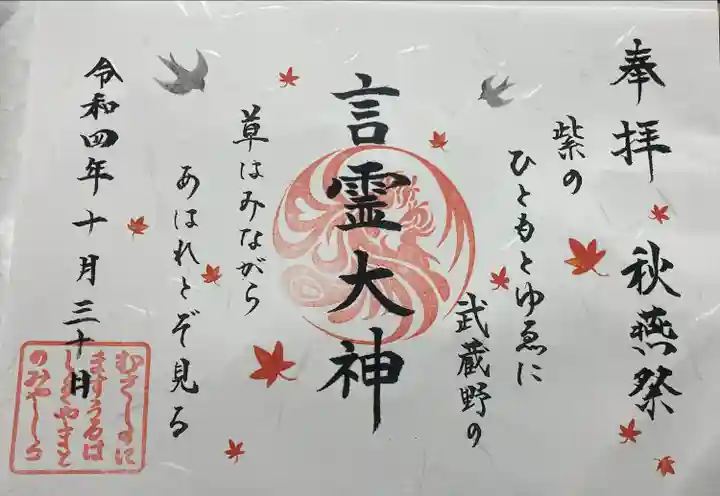 奉拝 秋燕祭
紫の
ひともとゆゑに
武蔵野の
言霊大神
草はみながら
あはれとぞ見る
令和四年十月三十日
むさしのに
ますうるは
しきやまと
のみやしろ